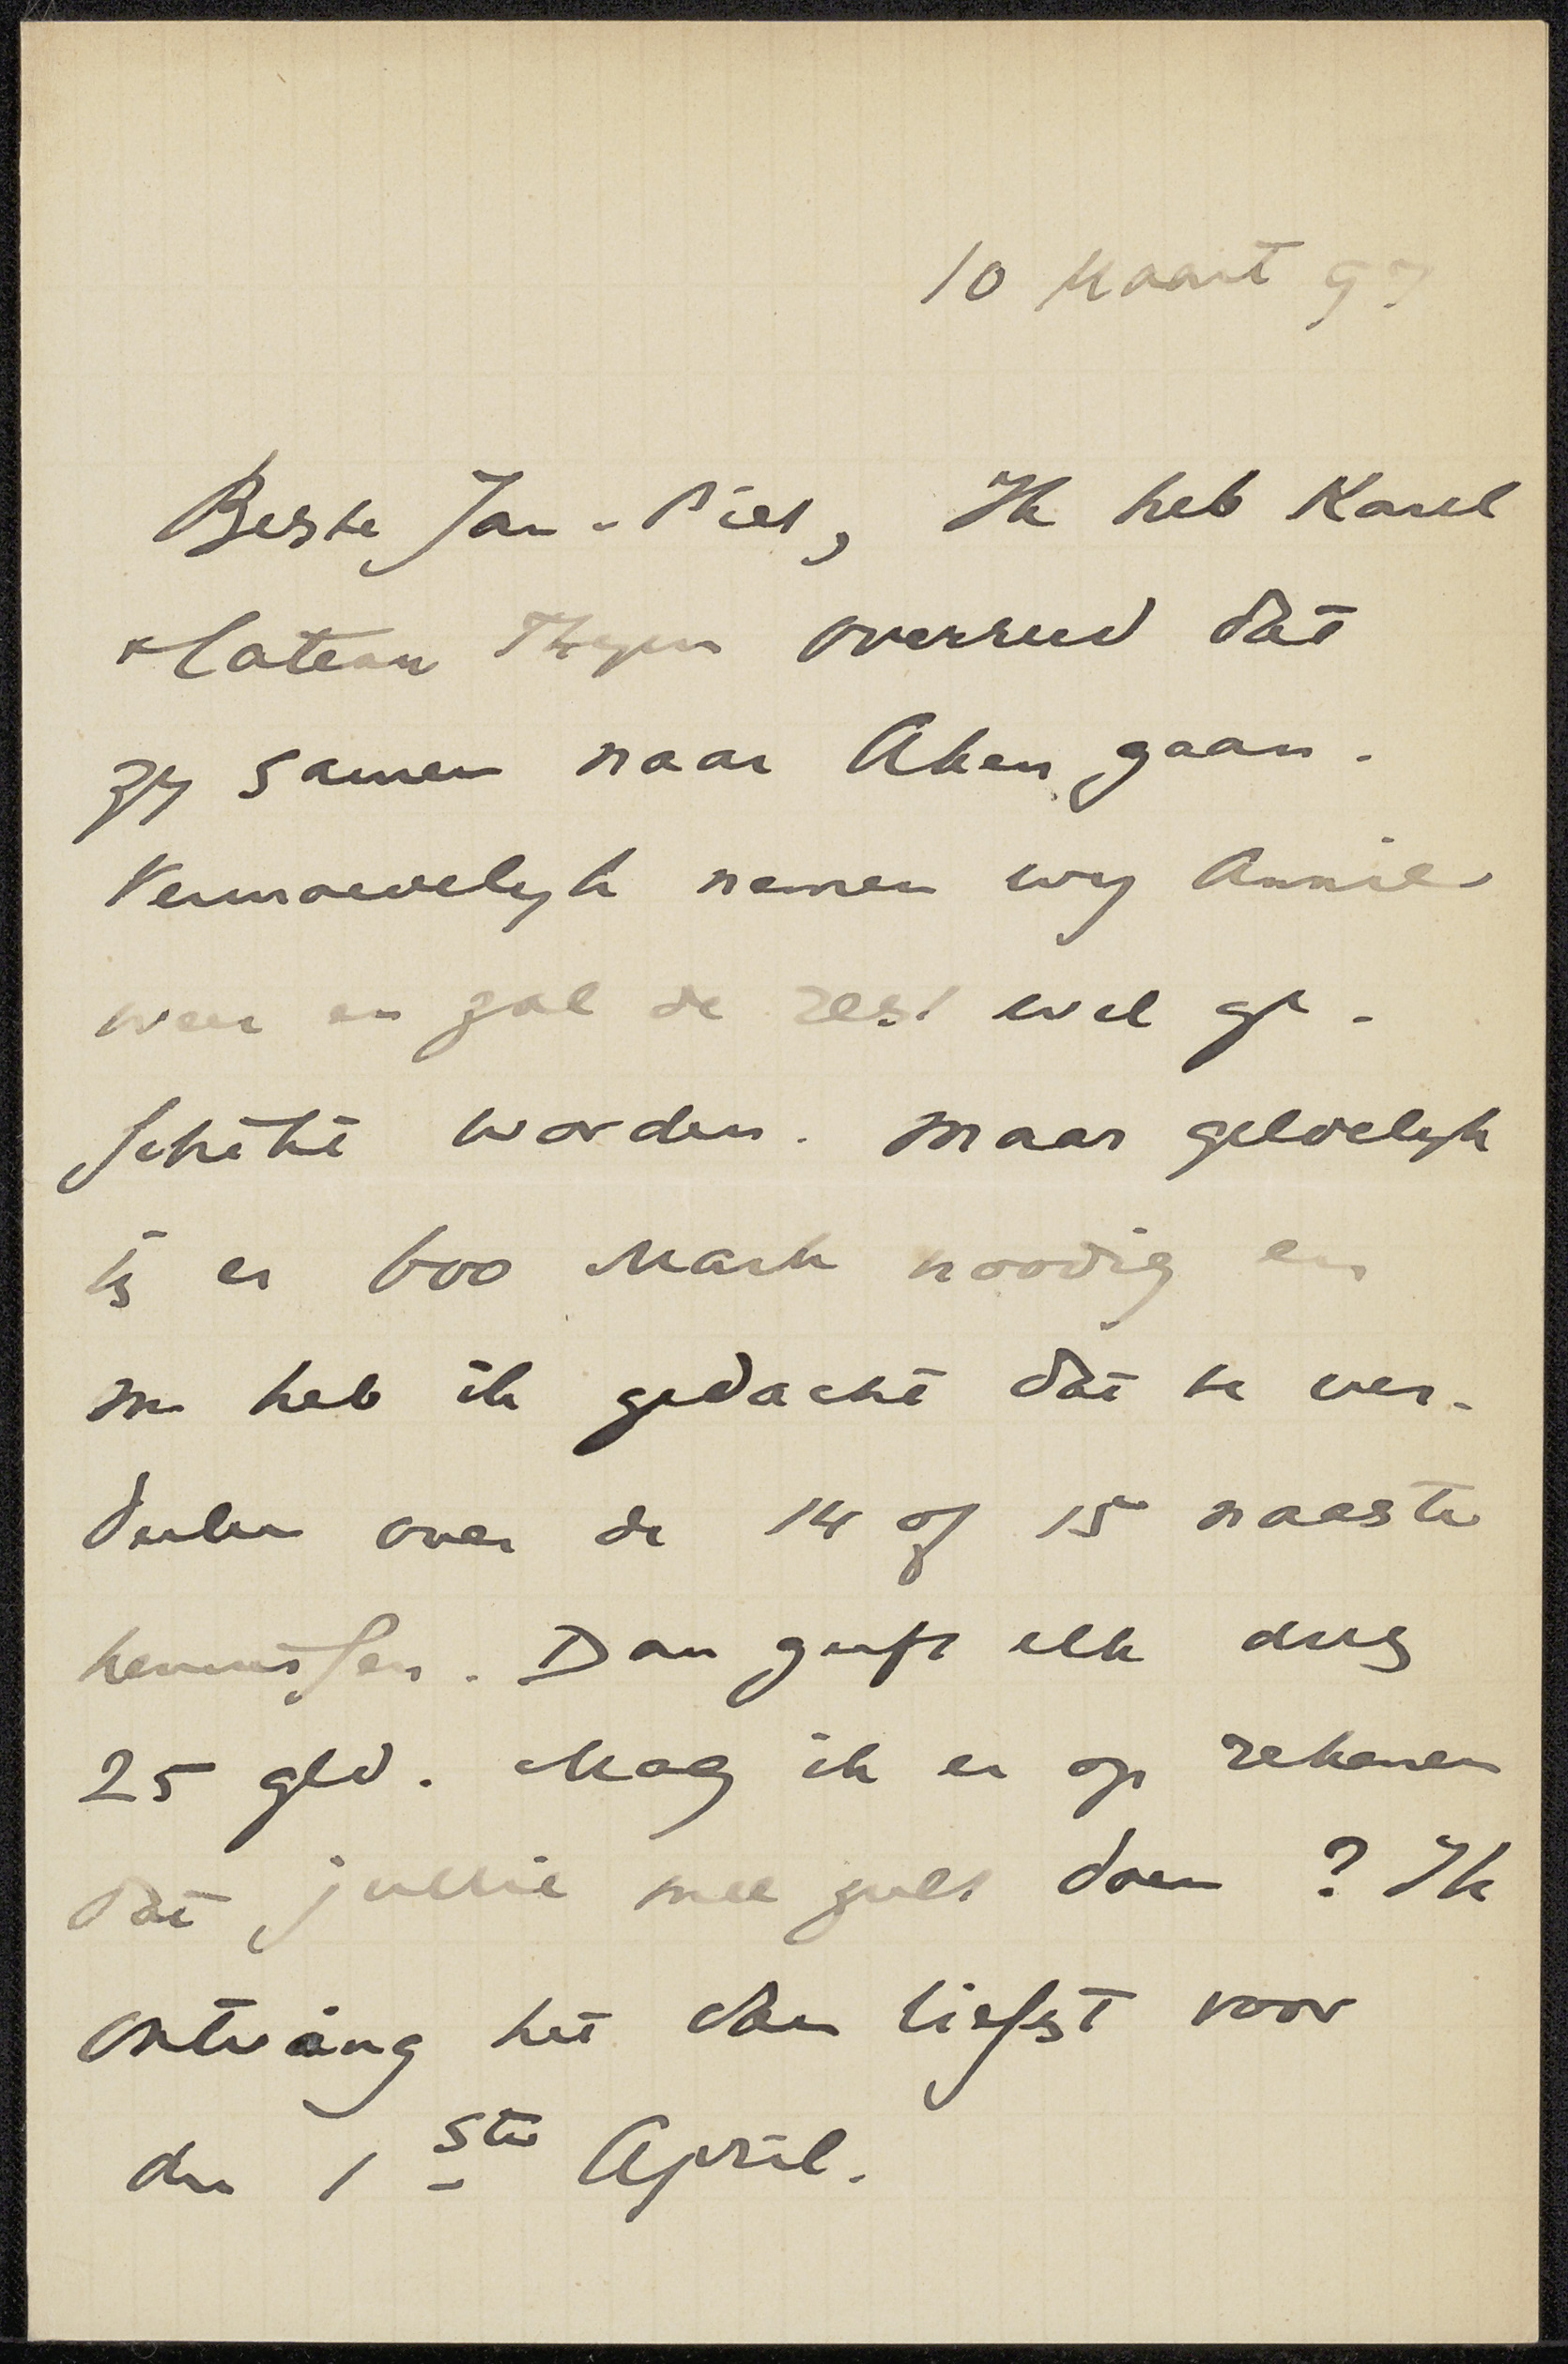 10 Maart 97
Beste Jan-Piet, Ik heb Karel
Thijm overreed dat
zy samen naar Aken gaan.
Vermoedelyk nemen wy Annie
weer en zal de rest wel ge-
schikt worden. Maar geldelyk
is er 600 Mark noodig en
nu heb ik gedacht dat te ver-
deelen over de 14 of 15 naaste
kennissen. Dan geeft elk dus
25 gld. Mag ik er op rekenen
dat jullie mee zult doen? Ik
ontvang het dan liefst voor
den 1ste April.